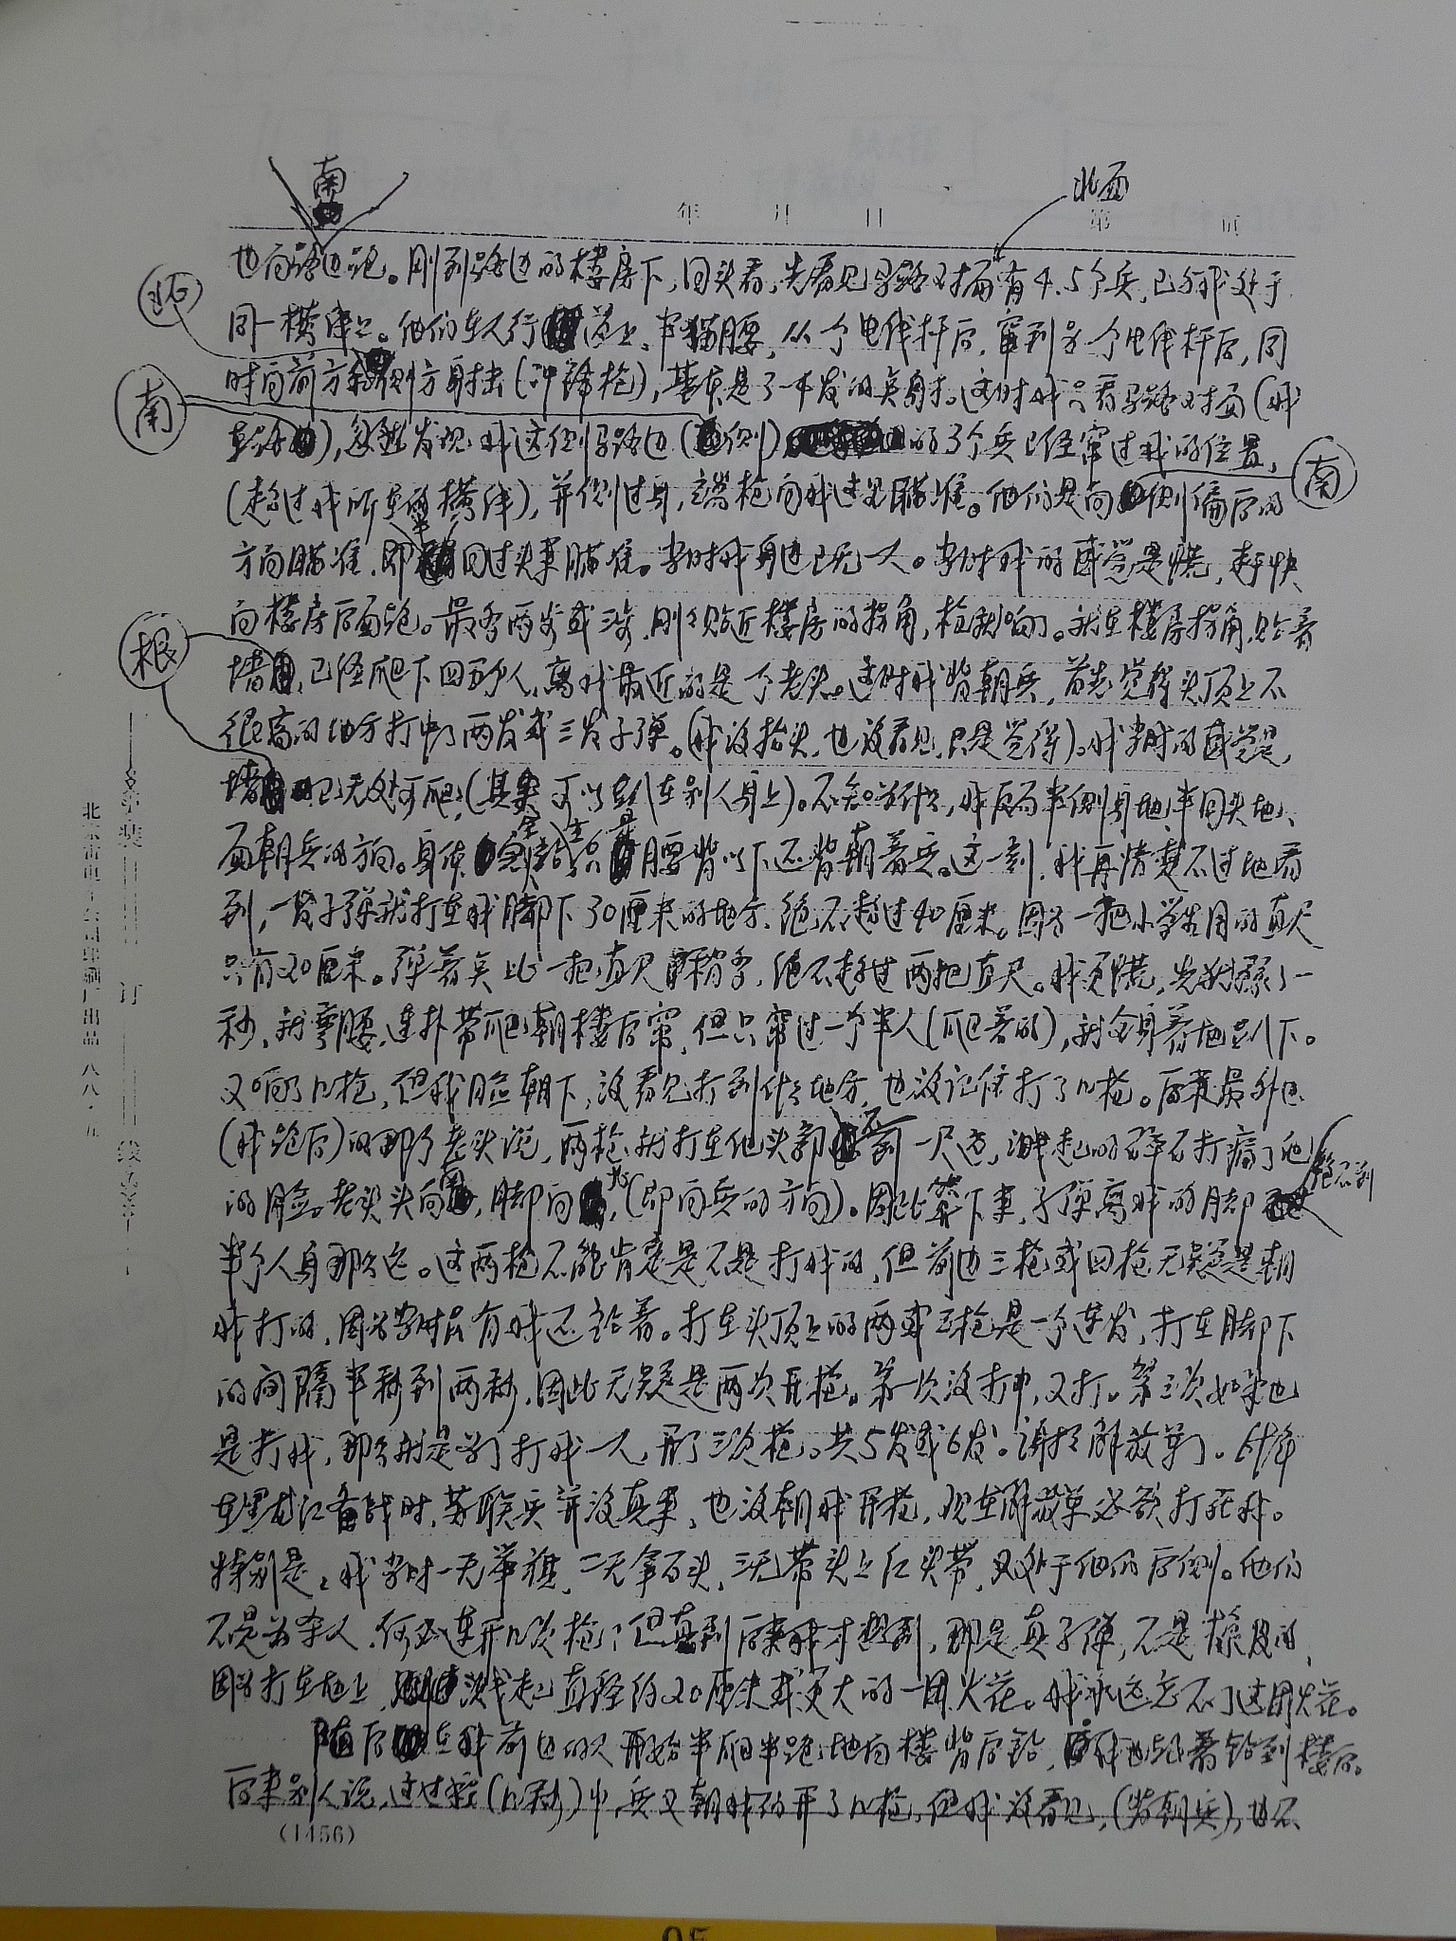 南
北面
年 月 日 第 页
也向路边跑。刚到路边的楼房下,回头看,先看见马路对面有4.5个兵,已与我处于
北
同一横线上。他们在人行道上,半猫腰,从一个电线杆后,窜到另一个电线杆后,同
时向前方和侧方射击(冲锋枪),基本是了一发的点射。这时我只看马路对面(我
南
在),忽然发现我这侧马路边(侧)的3个兵已经窜过我的位置,
南
(超过我所在横线),并侧过身,端枪向我这里瞄准。他们是向侧偏后的
方向瞄准,即回过头来瞄准。当时我身边已无一人。当时我的感觉是慌,赶快
向楼房后面跑。最多两步或三步,刚刚贴近楼房的拐角,枪就响了。就在楼房拐角,贴着
根
墙,已经爬下四五个人,离我最近的是一个老头。这时我背朝兵,首先觉得头顶上不
很高的地方打中了两发或三发子弹。(我没抬头,也没看见,只是觉得)。我当时的感觉是,
墙已无处可爬,(其实可以趴在别人身上)。不知为什么,我反而半侧身地、半回头地、
面朝兵的方向。身体只是腰背以下还背朝着兵。这一刻,我再清楚不过地看
到,一发子弹就打在我脚下30厘米的地方,绝不超过40厘米。因为一把小学生用的直尺
只有20厘米。弹着点比一把直尺稍多,绝不超过两把直尺。我更慌,先犹豫了一
秒,就弯腰,连扑带爬朝楼后窜,但只窜过一个半人(爬着的),就全身着地趴下。
又响了几枪,但我脸朝下,没看见打到什么地方,也没记住打了几枪。后来最外边
(我跑后)的那个老头说,两枪就打在他头部前一尺远,溅起的碎石打痛了他
的脸。老头头向南,脚向北,(即向兵的方向)。因此算下来,子弹离我的脚绝不到
半个人身那么远。这两枪不能肯定是不是打我的,但前边三枪或四枪无疑是朝
我打的,因为当时只有我还站着。打在头顶上的两或三枪是一个连发,打在脚下
的间隔半秒到两秒,因此无疑是两次开枪。第一次没打中,又打。第三次如果也
是打我,那么就是专门打我一人,开了三次枪。共5发或6发。谢谢解放军了。69年
在黑龙江备战时,苏联兵并没真来,也没朝我开枪,现在解放军必欲打死我。
特别是,我当时一无举旗,二无拿石头,三无带头上红头带,只处于他们后侧。他们
不是为杀人,何必连开几次枪?但直到后来我才想到,那是真子弹,不是橡皮的,
因为打在地上,溅起直径约20厘米或更大的一团火花。我永远忘不了这团火花。
随后在我前边的人开始半爬半跑地向楼背后钻,我也跟着钻到楼后。
后来别人说,这过程(几秒)中,兵又朝我们开了几枪,但我没看见,(背朝兵),也不
(1456)
文第装 订 线
北京雷电子公司印刷厂出品 八八·五